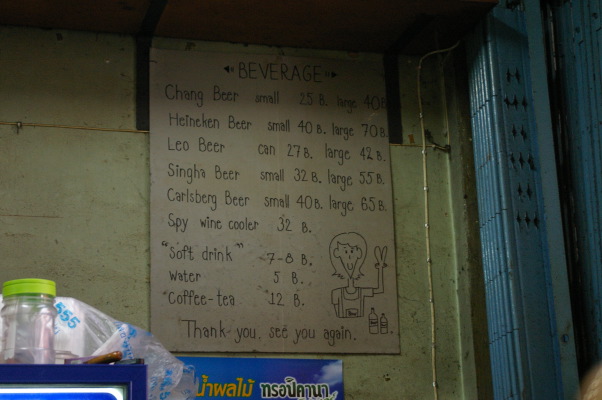 BEVERAGE
Chang Beer small 25 B. large 40 B.
Heineken Beer small 40 B. large 70 B.
Leo Beer can 27 B. large 42 B.
Singha Beer small 32 B. large 55 B.
Carlsberg Beer small 40 B. large 65 B.
Spy wine cooler 32 B.
"Soft drink" 7-8 B.
Water 5 B.
"Coffee-tea 12 B.
Thank you, see you again.
555
น้ำผลไม้ ทรอปิคานา